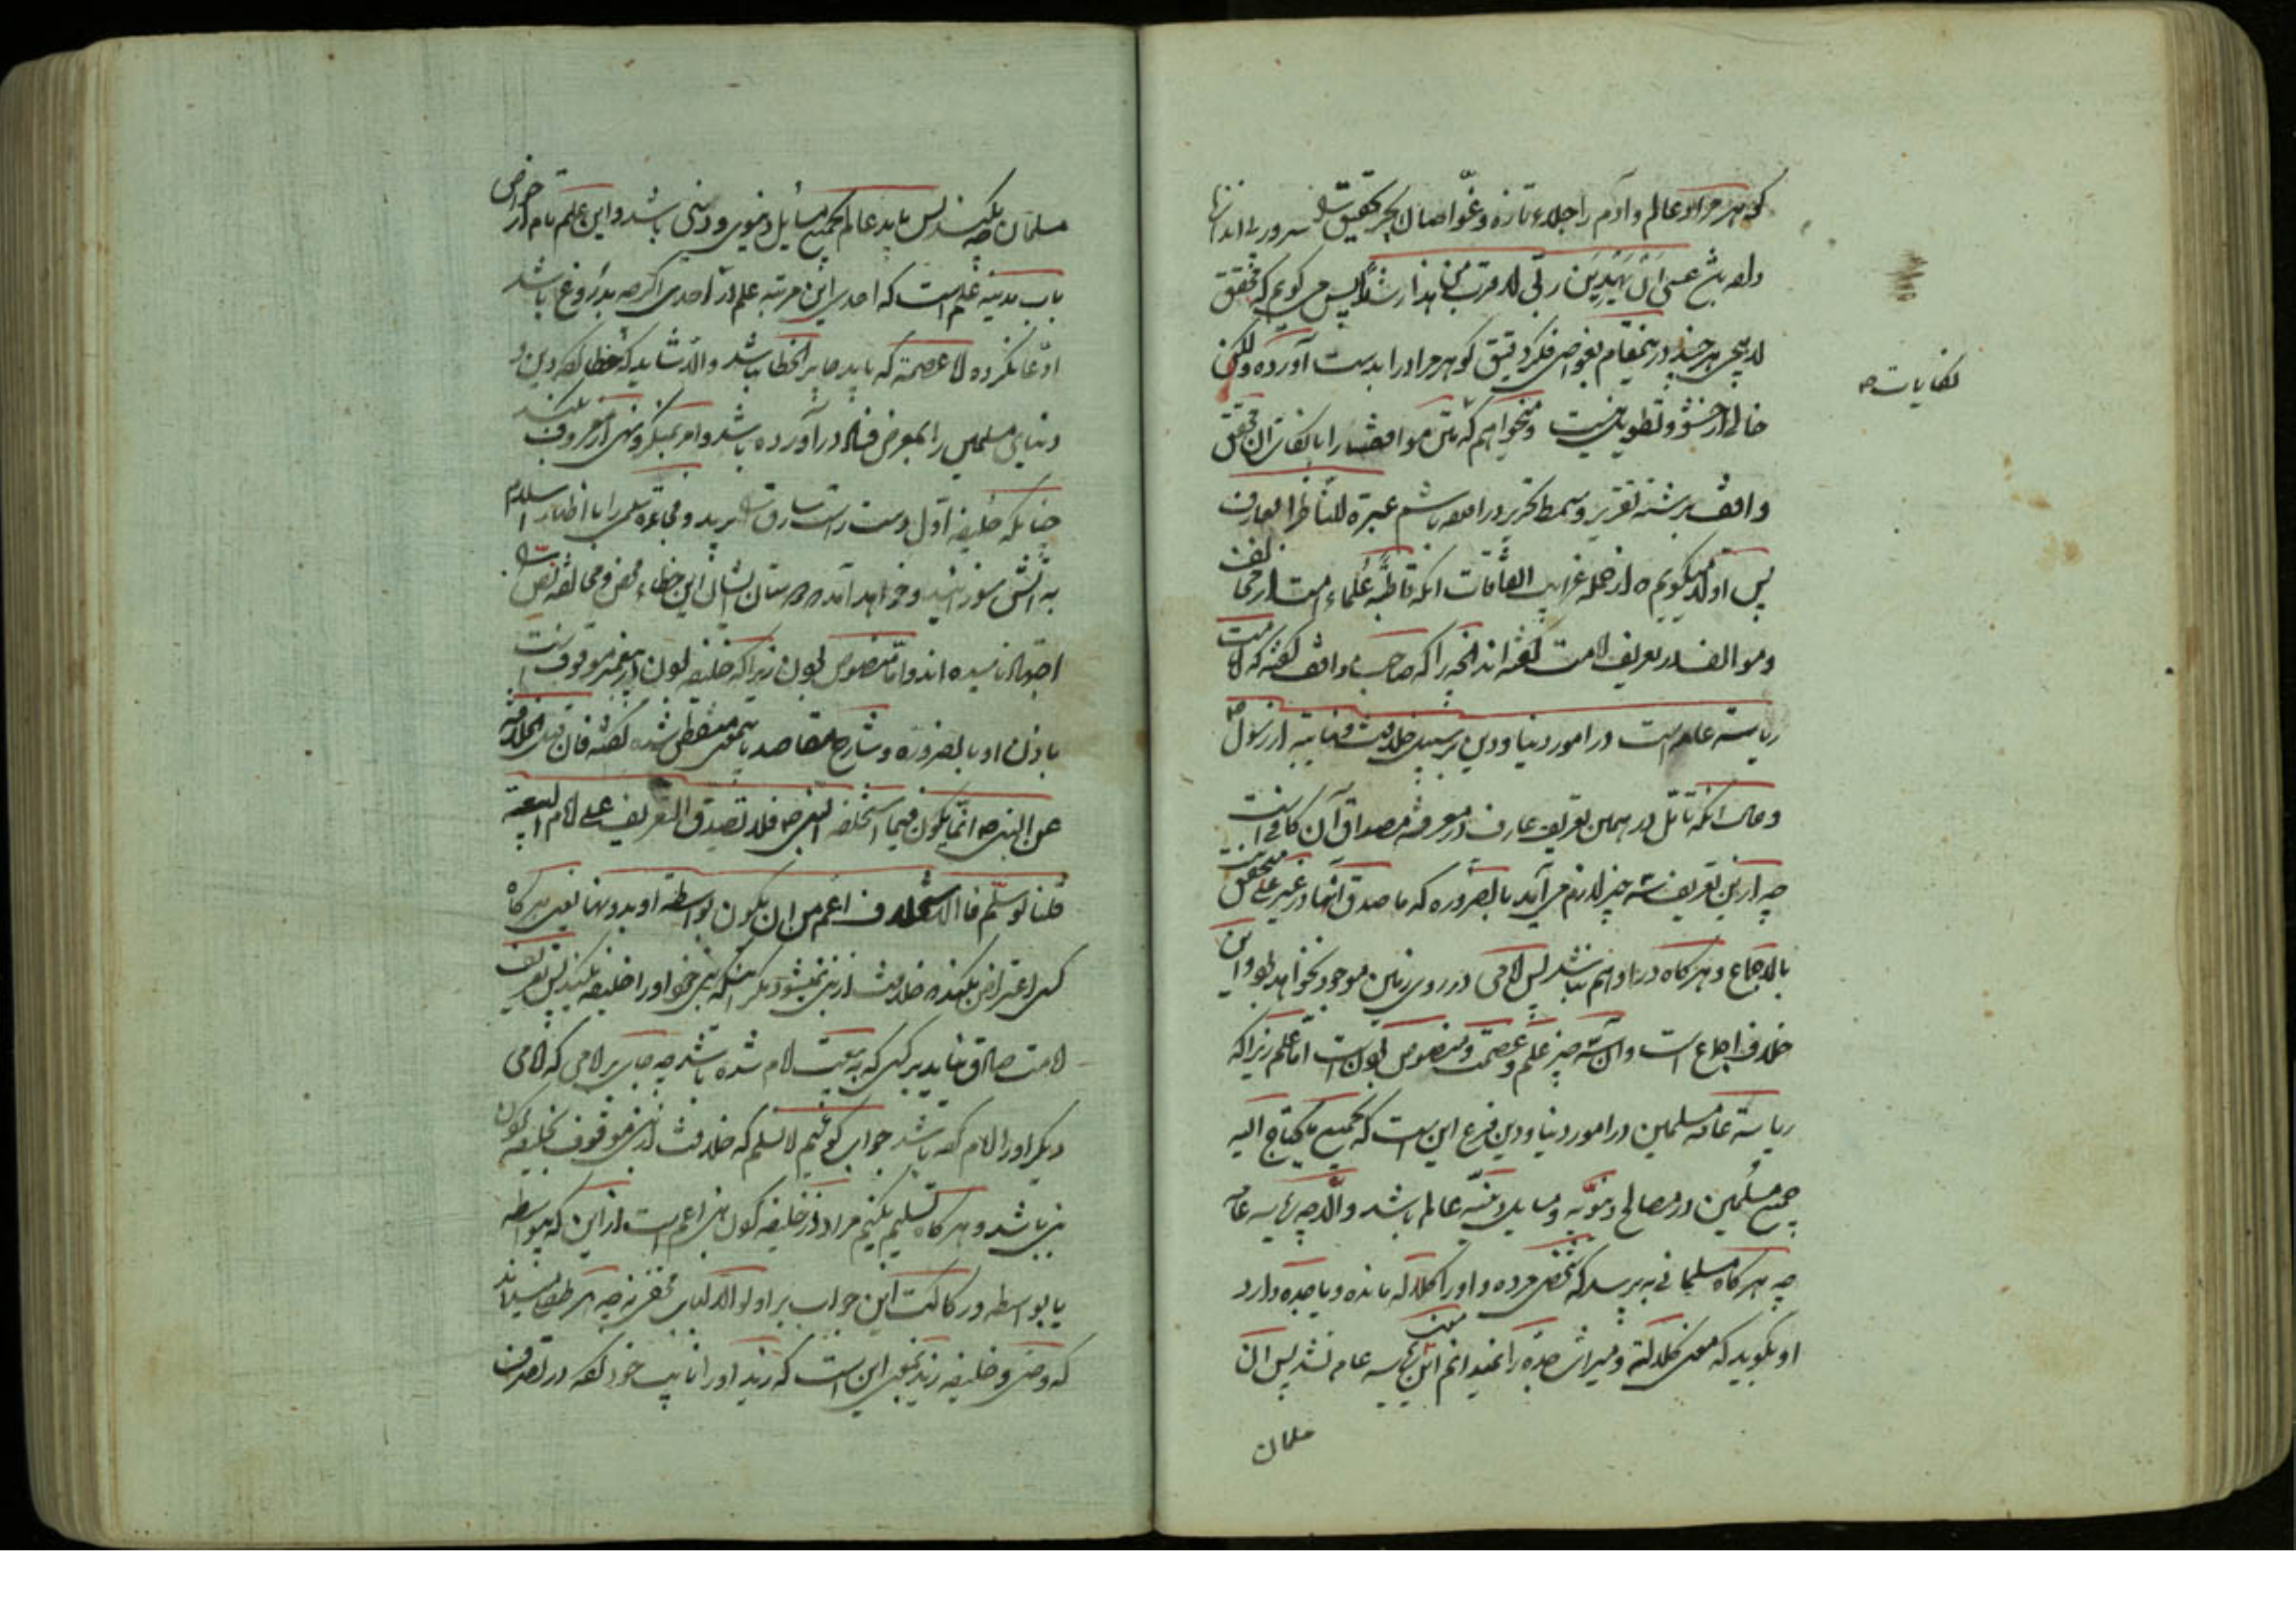 که هر مراد عالم و آدم را جلاء تازه و غواصان بحر تحقیق
عسی ان یهدین ربی لاقرب من هذا رشدا پس می گویم که محقق
لاهیجی هر چند در اینمقام بغواصی فکر دقیق گوهر مراد را بدست آورده ولکن
خالی از حشو و تطویل نیست و میخواهم که متن مواقف را با لفاظ آن محقق
واقف برشته تقریر و سمط تحریر درآمده باشم عبرة للناظر العارف
پس اولا میگویم که از جمله غرایب اتفاقات آنکه قاطبه علماء امت از مخالف
و موالف در تعریف امامت گفته اند آنچه را که صاحب مواقف گفته که امامت
ریاسة عامه است در امور دنیا و دین بر سبیل خلافت و نیابة از رسول ص
و حال آنکه تأمل در همین تعریف عارف را در معرفة مصداق آن کافی است
چه از این تعریف سه چیز لازم می آید بالضروره که ما صدق آنها در غیر علی متحقق نیست
بالاجماع و هر گاه در او هم نباشد پس امامی در روی زمین موجود نخواهد بود و این
خلاف اجماع است و آن سه چیز علم و عصمت و منصوص بودن است اما علم زیرا که
ریاسة عامه مسلمین در امور دنیا و دین فرع این است که بجمیع ما یحتاج الیه
جمیع مسلمین در مصالح دنیویه و مسایل دینیه عالم باشد والا چه ریاسة عامه
چه هر گاه مسلمانی بپرسد که شخصی مرده و او را کلاله مانده و یا جده دارد
او بگوید که معنی کلاله و میراث جده را نمیدانم این ریاسة عامه نشد پس آن
مسلمان
کفایات ص
مسلمان چه بکند پس باید عالم بجمیع مسایل دنیوی و دینی باشد و این علم تام از خواص
باب مدینه علم است که احدی این مرتبه علم در احدی اگر چه بدروغ باشد
ادعا نکرده اما عصمة که باید جایز الخطا نباشد والا شاید که خطا کرده دین و
دنیای مسلمین را بمعرض فساد درآورده باشد و امر بمنکر و نهی از معروف بکند
چنانکه خلیفه اول دست راست سارق را برید و فجاءة سلمی را با اظهار اسلام
به آتش سوزانید و خواهد آمد این خطاء محض و مخالفة نص را
اجتهاد نامیده اند و اما منصوص بودن زیرا که خلیفه بودن از پیغمبر موقوف است
باذن او بالضروره و شارح مقاصد باینمعنی متفطن شده گفته فان قیل الخلافة
عن النبی ص انما یکون فیما استخلفه النبی ص فلا تصدق التعریف علی امام البیعة
قلنا لو سلم فالاستخلاف اعم من ان یکون بواسطة او بدونها یعنی هر گاه
کسی اعتراض بکند که خلافت از نبی نمیشود مگر اینکه نبی خود او را خلیفه بکند پس تعریف
امامت صادق نیاید بر کسی که به بیعت امام شده باشد چه جای بر امامی که امامی
دیگر او را امام کرده باشد جواب گوئیم لا نسلم که خلافت از نبی موقوف بخلیفه کردن
نبی باشد و هر گاه تسلیم بکنیم مراد از خلیفه کردن نبی اعم است از این که بیواسطه
یا بواسطه و رکاکت این جواب بر اولوالالباب مخفی نه چه هر طفل میداند
که وصی و خلیفه زید بمعنی این است که زید او را نایب خود کرده در تصرف